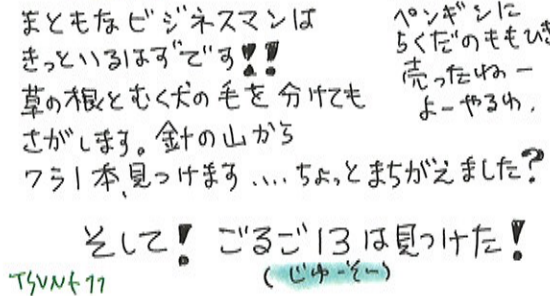 まともなビジネスマンは
きっといるはずです!!
草の根とむく犬の毛を分けても
さがします。針の山から
ワラ1本、見つけます....ちょっとまちがえました?
ペンギンに
らくだのももひき
売ったねー
よーやるわ.
そして! ごるご13は見つけた!
(じゅーぞー)